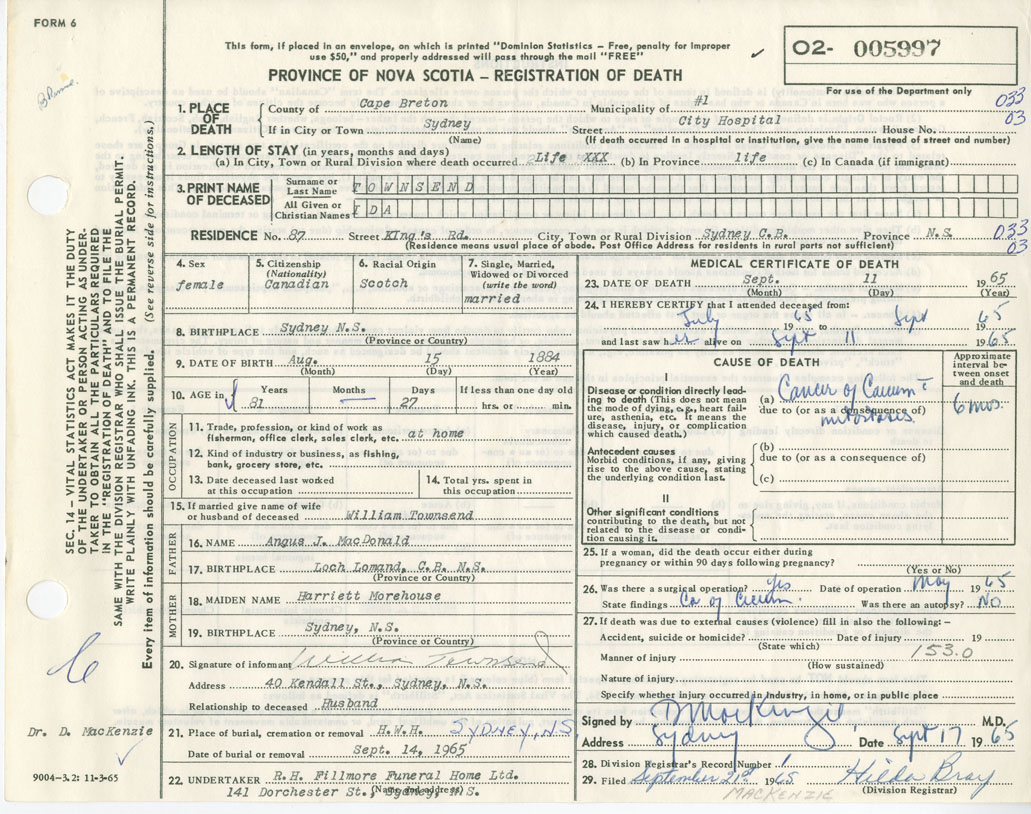 FORM 6
This form, if placed in an envelope, on which is printed "Dominion Statistics – Free, penalty for improper
use $50," and properly addressed will pass through the mail "FREE"
PROVINCE OF NOVA SCOTIA – REGISTRATION OF DEATH
02- 005997
For use of the Department only
033
03
1. PLACE OF DEATH
County of Cape Breton Municipality of #1
If in City or Town Sydney Street City Hospital House No.
(Name) (If death occurred in a hospital or institution, give the name instead of street and number)
2. LENGTH OF STAY (in years, months and days)
(a) In City, Town or Rural Division where death occurred Life XXX (b) In Province life (c) In Canada (if immigrant)
3. PRINT NAME OF DECEASED
Surname or Last Name TOWNSEND
All Given or Christian Names IDA
RESIDENCE No. 87 Street KIng's Rd. City, Town or Rural Division Sydney C.B. Province N.S.
(Residence means usual place of abode. Post Office Address for residents in rural parts not sufficient)
033
03
4. Sex
female
5. Citizenship
(Nationality)
Canadian
6. Racial Origin
Scotch
7. Single, Married,
Widowed or Divorced
(write the word)
married
8. BIRTHPLACE Sydney N.S.
(Province or Country)
9. DATE OF BIRTH Aug. 15 1884
(Month) (Day) (Year)
10. AGE in
Years Months Days If less than one day old
81 27 hrs. or min.
OCCUPATION
11. Trade, profession, or kind of work as
fisherman, office clerk, sales clerk, etc. at home
12. Kind of industry or business, as fishing,
bank, grocery store, etc.
13. Date deceased last worked
at this occupation
14. Total yrs. spent in
this occupation
15. If married give name of wife
or husband of deceased William Townsend
FATHER
16. NAME Angus J. MacDonald
17. BIRTHPLACE Loch Lomand, C.B. N.S.
(Province or Country)
MOTHER
18. MAIDEN NAME Harriett Morehouse
19. BIRTHPLACE Sydney, N.S.
(Province or Country)
20. Signature of informant Townsend
Address 40 Kendall St., Sydney, N.S.
Relationship to deceased Husband
21. Place of burial, cremation or removal H.W.H. SYDNEY, N.S
Date of burial or removal Sept. 14, 1965
22. UNDERTAKER R.H. Fillmore Funeral Home Ltd.
(Name and address)
141 Dorchester St., Sydney, N.S.
MEDICAL CERTIFICATE OF DEATH
23. DATE OF DEATH Sept. 11 1965
(Month) (Day) (Year)
24. I HEREBY CERTIFY that I attended deceased from:
July 1965 to Sept 1965
and last saw her alive on Sept 11 1965
CAUSE OF DEATH
Approximate
interval be-
tween onset
and death
I
Disease or condition directly lead-
ing to death (This does not mean
the mode of dying, e.g., heart fail-
ure, asthenia, etc. It means the
disease, injury, or complication
which caused death.)
(a) Cancer of Caecum
due to (or as a consequence of)
6 mos.
Antecedent causes
Morbid conditions, if any, giving
rise to the above cause, stating
the underlying condition last.
(b)
due to (or as a consequence of)
(c)
II
Other significant conditions
contributing to the death, but not
related to the disease or condi-
tion causing it.
25. If a woman, did the death occur either during
pregnancy or within 90 days following pregnancy?
(Yes or No)
26. Was there a surgical operation? yes Date of operation May 1965
State findings Ca of Caecum. Was there an autopsy? NO
27. If death was due to external causes (violence) fill in also the following:–
Accident, suicide or homicide? Date of injury 19
(State which)
153.0
Manner of injury
(How sustained)
Nature of injury
Specify whether injury occurred in industry, in home, or in public place
Signed by D MacKenzie M.D.
Address Sydney Date Sept 17 1965
28. Division Registrar's Record Number
29. Filed September 21st 1965 Hilda Bray
(Division Registrar)
MACKENZIE
SEC. 14 – VITAL STATISTICS ACT MAKES IT THE DUTY
OF THE UNDERTAKER OR PERSON ACTING AS UNDER-
TAKER TO OBTAIN ALL THE PARTICULARS REQUIRED
IN THE "REGISTRATION OF DEATH" AND TO FILE THE
SAME WITH THE DIVISION REGISTRAR WHO SHALL ISSUE THE BURIAL PERMIT.
WRITE PLAINLY WITH UNFADING INK. THIS IS A PERMANENT RECORD.
Every item of information should be carefully supplied. (See reverse side for instructions.)
Dr. D. MacKenzie
9004-3.2: 11-3-65